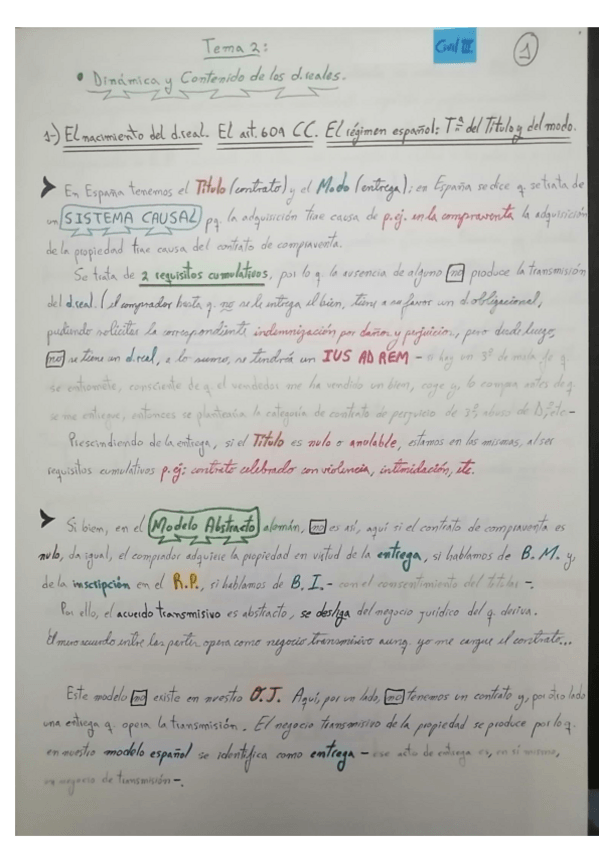 Tema 2:
Civil III
1
• Dinámica y Contenido de los d.reales.
1-) El nacimiento del d.real. El art. 609 CC. El régimen español: Tª del Título y del modo.
➤ En España tenemos el Título (contrato) y el Modo (entrega); en España se dice q. se trata de
un SISTEMA CAUSAL pq. la adquisición trae causa de p.ej. en la compraventa la adquisición
de la propiedad trae causa del contrato de compraventa.
Se trata de 2 requisitos cumulativos, por lo q. la ausencia de alguno no produce la transmisión
del d.real. (el comprador hasta q. no se le entrega el bien, tiene a su favor un d.obligacional,
pudiendo solicitar la correspondiente indemnización por daños y perjuicios, pero desde luego,
no se tiene un d.real, a lo sumo, se tendría un IUS AD REM - si hay un 3º de mala fe q.
se entromete, consciente de q. el vendedor me ha vendido un bien, coge y lo compra antes de q.
se me entregue, entonces se plantearía la categoría de contrato de perjuicio de 3º, abuso de Dº, etc.-
Prescindiendo de la entrega, si el Título es nulo o anulable, estamos en las mismas, al ser
requisitos cumulativos p.ej: contrato celebrado con violencia, intimidación, etc.
➤ Si bien, en el Modelo Abstracto alemán, no es así, aquí si el contrato de compraventa es
nulo, da igual, el comprador adquiere la propiedad en virtud de la entrega, si hablamos de B.M. y,
de la inscripción en el R.P., si hablamos de B.I. - con el consentimiento del titular -.
Por ello, el acuerdo transmisivo es abstracto, se desliga del negocio jurídico del q. deriva.
El mero acuerdo entre las partes opera como negocio transmisivo aunq. yo me cargue el contrato...
Este modelo no existe en nuestro O.J. Aquí, por un lado, no tenemos un contrato y, por otro lado
una entrega q. opera la transmisión. El negocio transmisivo de la propiedad se produce por lo q.
en nuestro modelo español se identifica como entrega - ese acto de entrega es, en sí mismo,
un negocio de transmisión -.